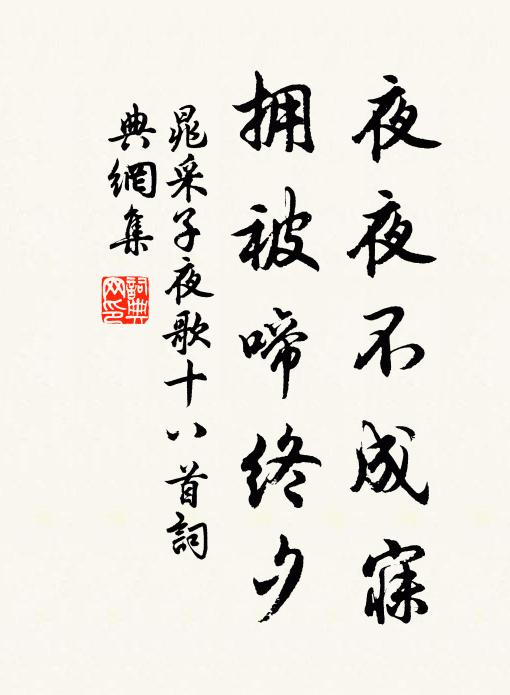 夜夜不成寐
拥被啼终夕
晁采子夜歌十八首詞
典網集
詞典
网印